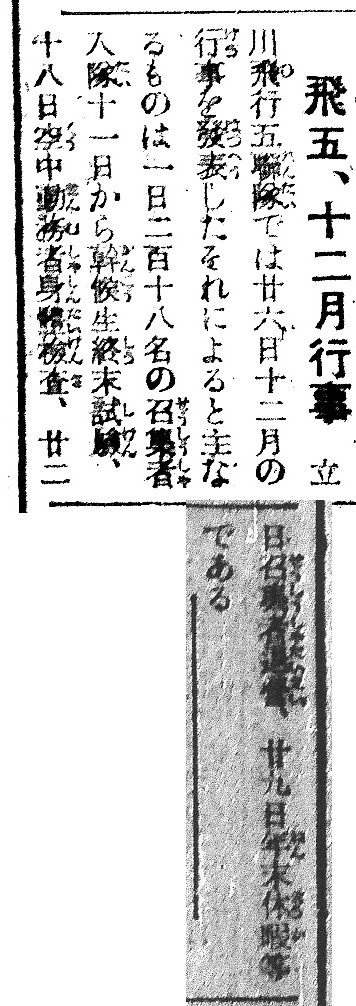 飛五、十二月行事 立
川飛行五聯隊では廿六日十二月の
行事を發表したそれによると主な
るものは一日二百十八名の召集者
入隊十一日から幹候生終末試驗、
十八日空中勤務者身體檢査、廿二
日召集者退營、廿九日年末休暇等
である